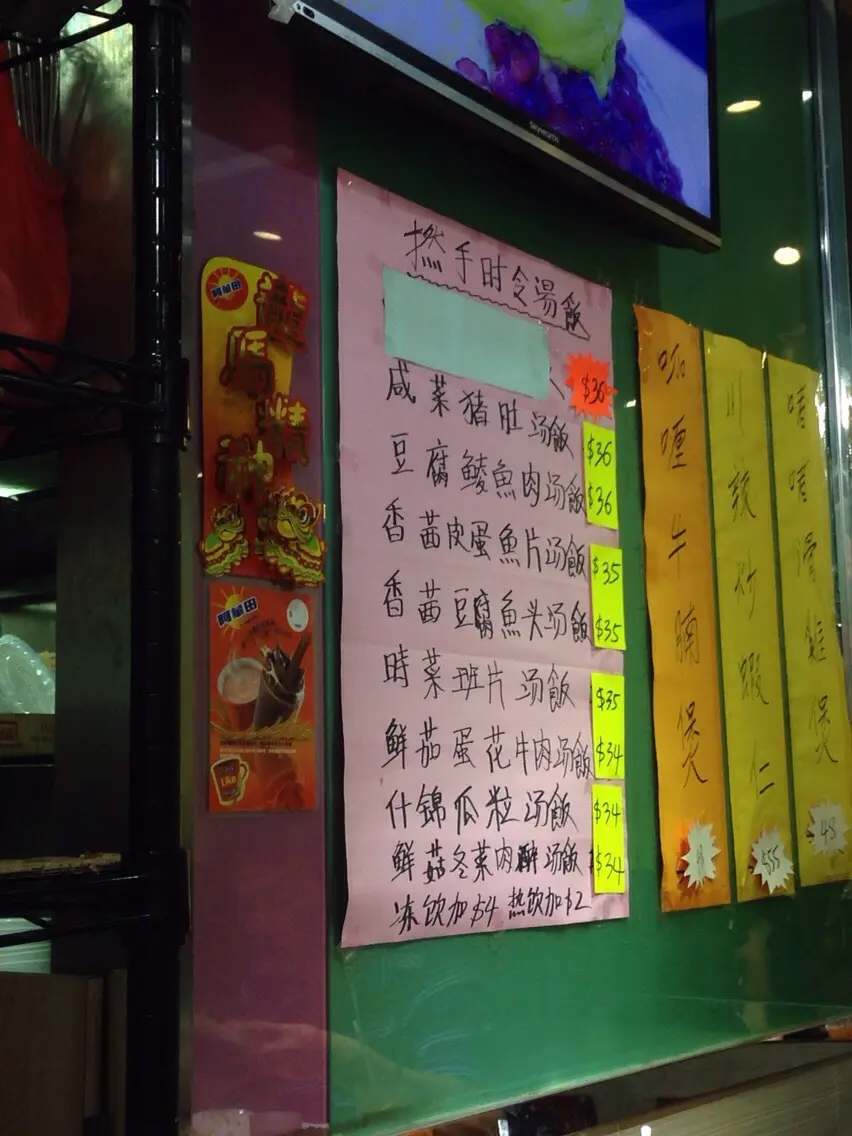 Skyworth
撚手时令湯飯
$36
咸菜猪肚汤飯 $36
豆腐鲮魚肉汤飯 $36
香茜皮蛋魚片汤飯 $35
香茜豆腐魚头汤飯 $35
時菜班片汤飯 $35
鮮茄蛋花牛肉汤飯 $34
什錦瓜粒汤飯 $34
鮮菇冬菜肉碎汤飯 $34
冻饮加$4 热饮加$2
阿華田
龍馬精神
阿華田
Like
咖喱牛腩煲
川椒炒蝦仁
$55
啫啫滑雞煲
48